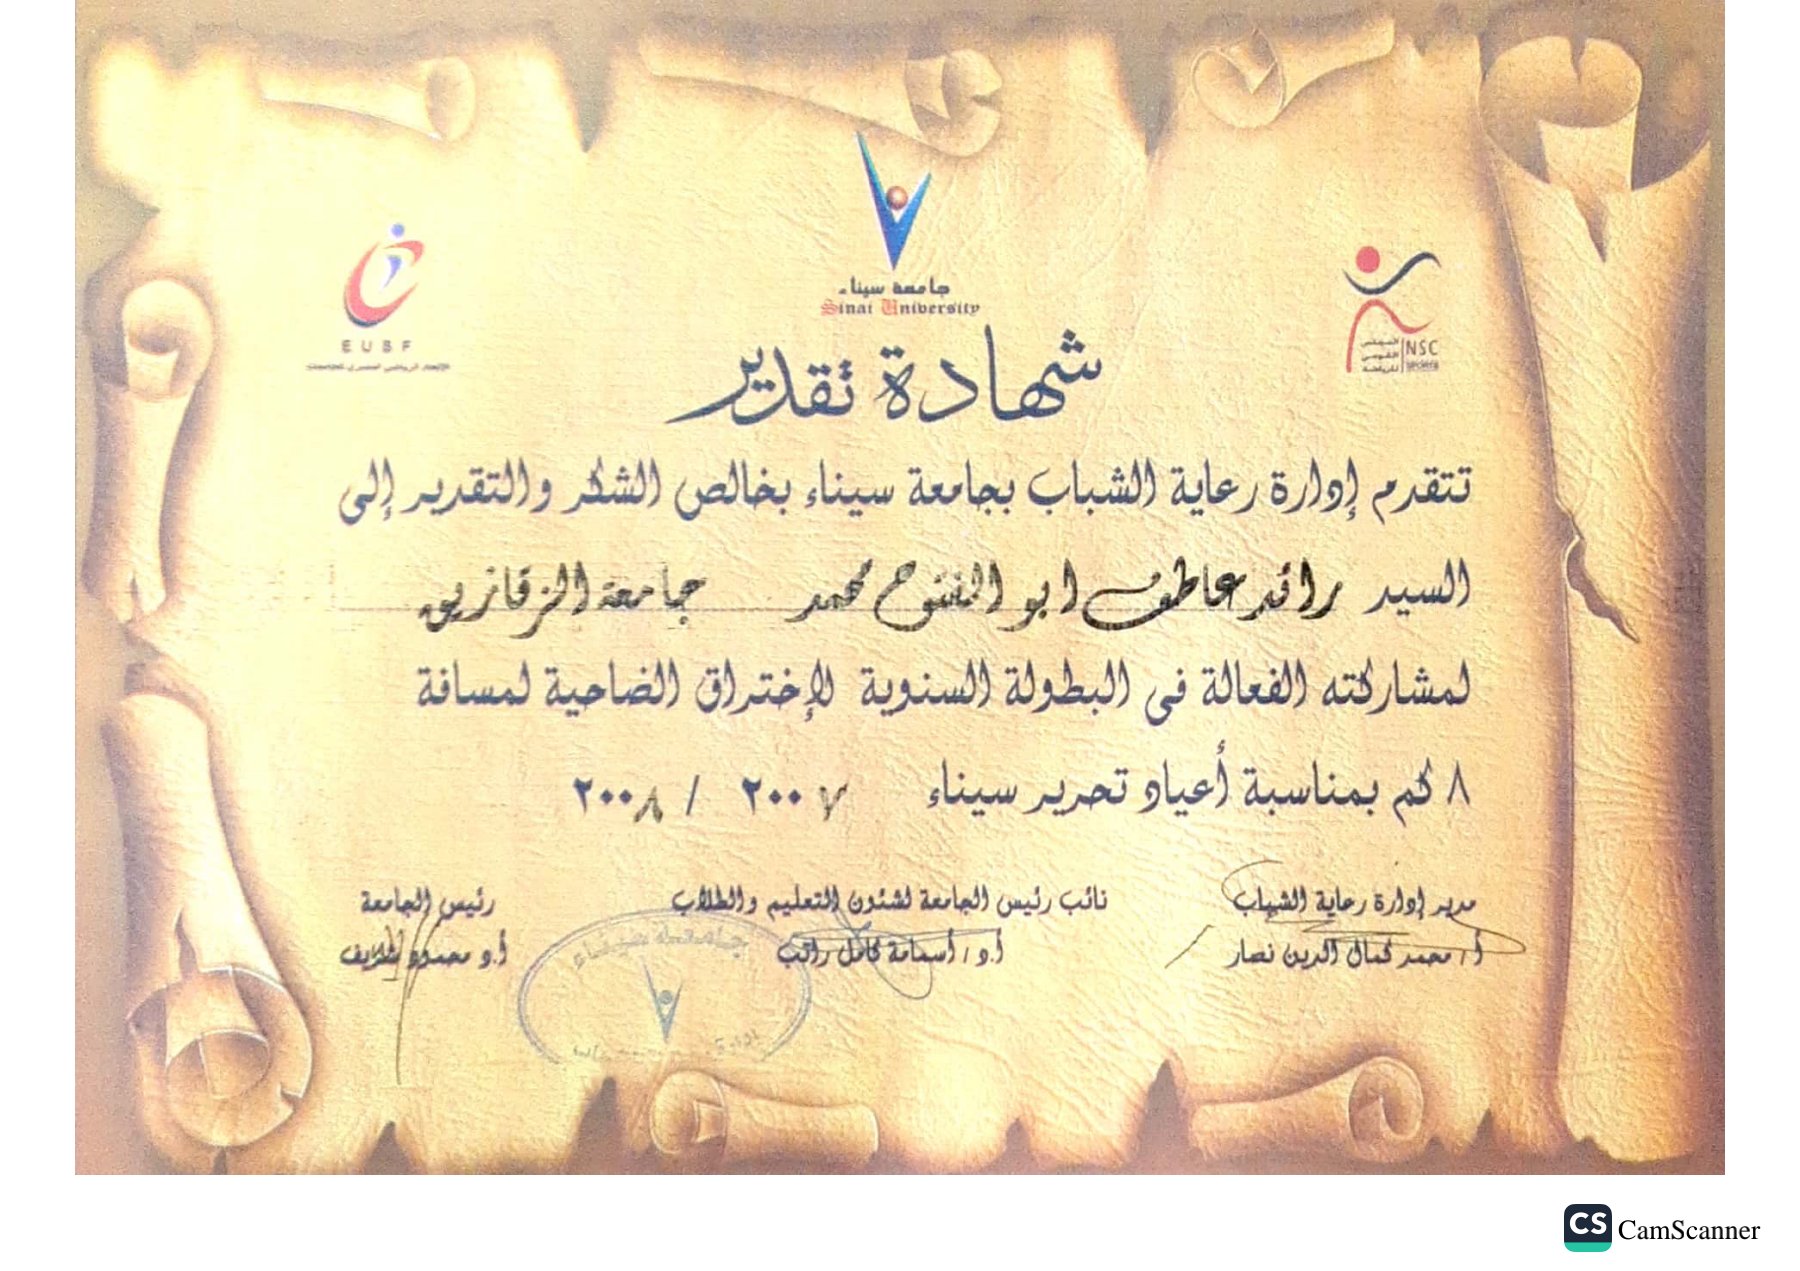 جامعة سيناء
Sinai University
EUSF
الإتحاد الرياضي المصري للجامعات
المجلس
القومي
للرياضة
NSC
sports
شهادة تقدير
تتقدم إدارة رعاية الشباب بجامعة سيناء بخالص الشكر والتقدير إلى
السيد رائد عاطف ابو الفتوح محمد جامعة الزقازيق
لمشاركته الفعالة فى البطولة السنوية لإختراق الضاحية لمسافة
٨ كم بمناسبة أعياد تحرير سيناء ٢٠٠٧ / ٢٠٠٨
مدير إدارة رعاية الشباب
أ/ محمد كمال الدين نصار
نائب رئيس الجامعة لشئون التعليم والطلاب
أ.د / أسامة كامل راتب
رئيس الجامعة
أ.د محمود شريف
جامعة سيناء
CS CamScanner